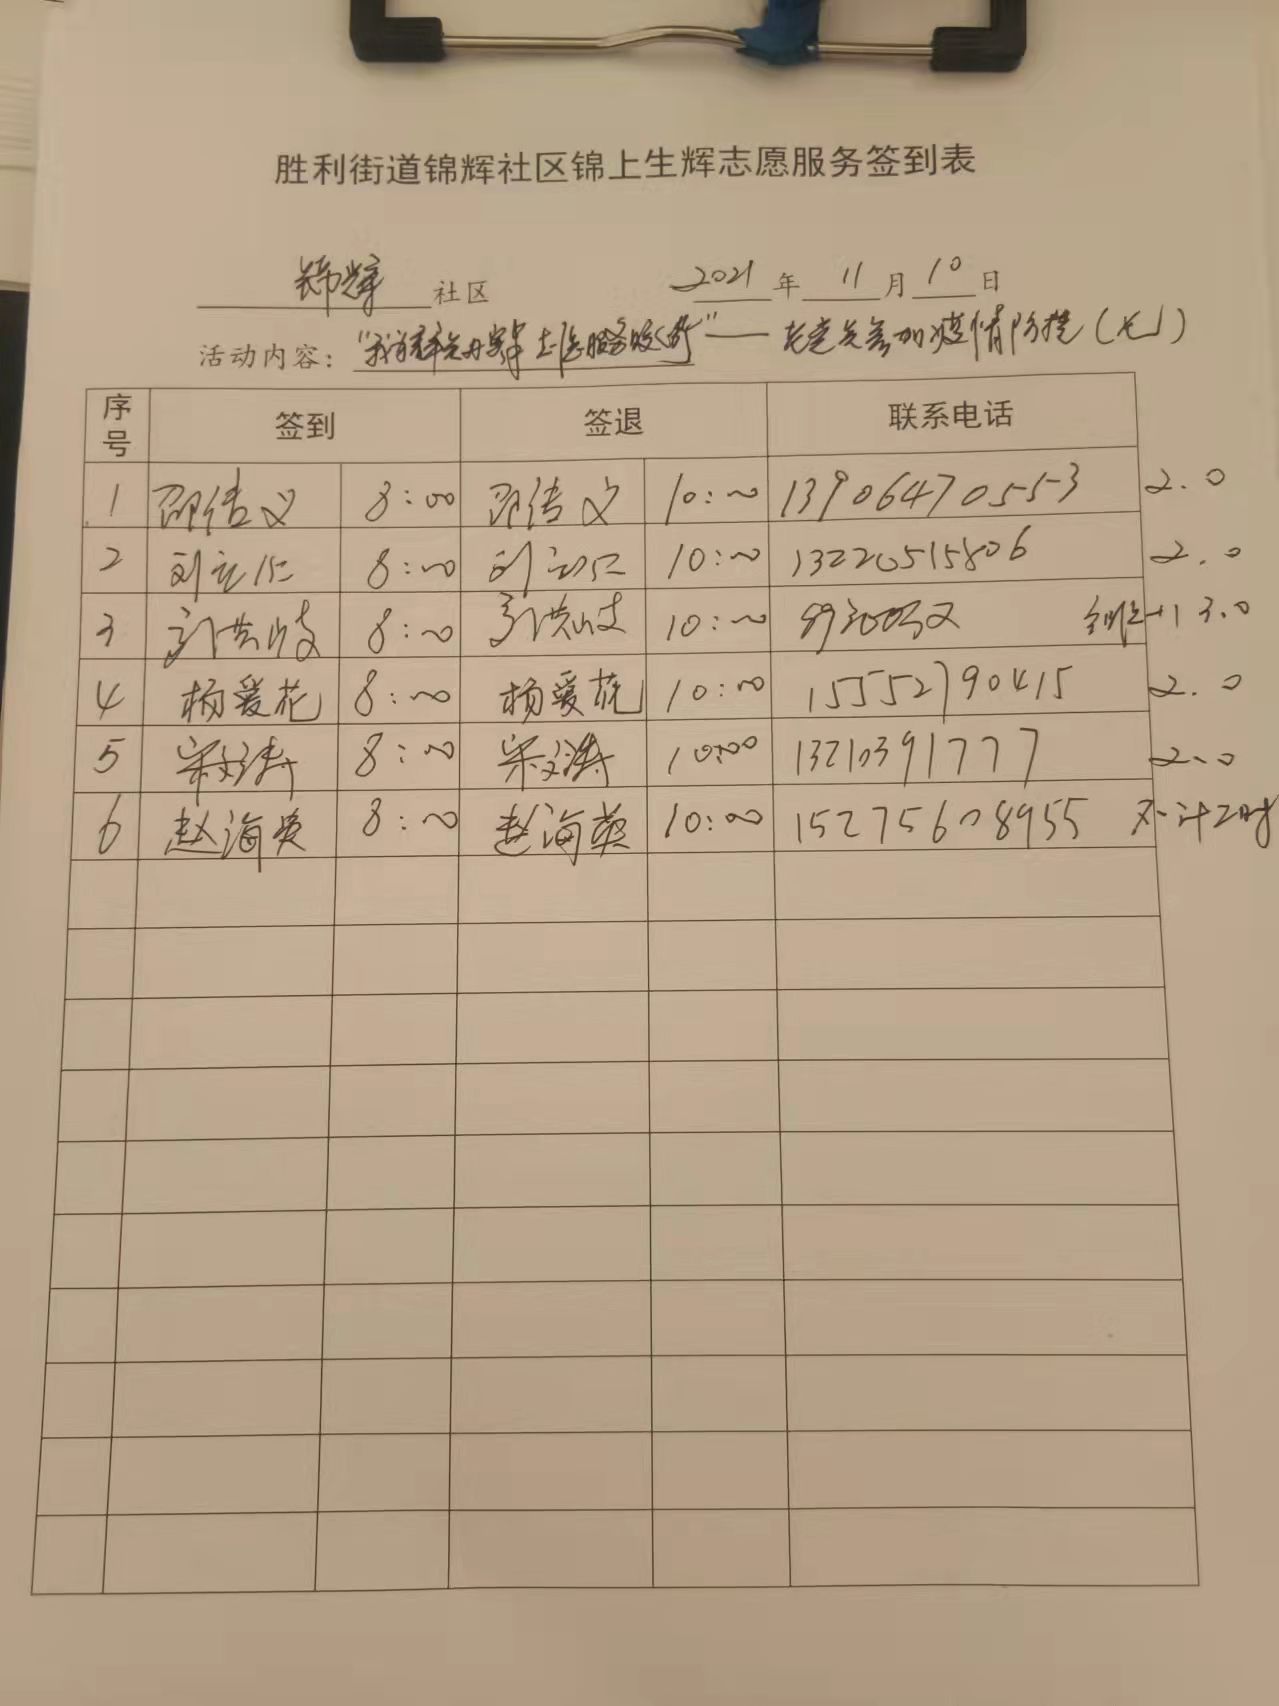 胜利街道锦辉社区锦上生辉志愿服务签到表
锦辉 社区 2021 年 11 月 10 日
活动内容： “我为群众办实事 志愿服务 ”—— 老党员参加疫情防控（ ）
序号 签到 签退 联系电话
1 邵传义 8:00 邵传义 10:00 13906470553 2.0
2 刘立仁 8:00 刘立仁 10:00 13220515806 2.0
3 洪岐 8:00 洪岐 10:00 +1 3.0
4 杨爱花 8:00 杨爱花 10:00 15552790415 2.0
5 宋文涛 8:00 宋文涛 10:00 13210391777 2.0
6 赵海英 8:00 赵海英 10:00 15275608955 不计工时